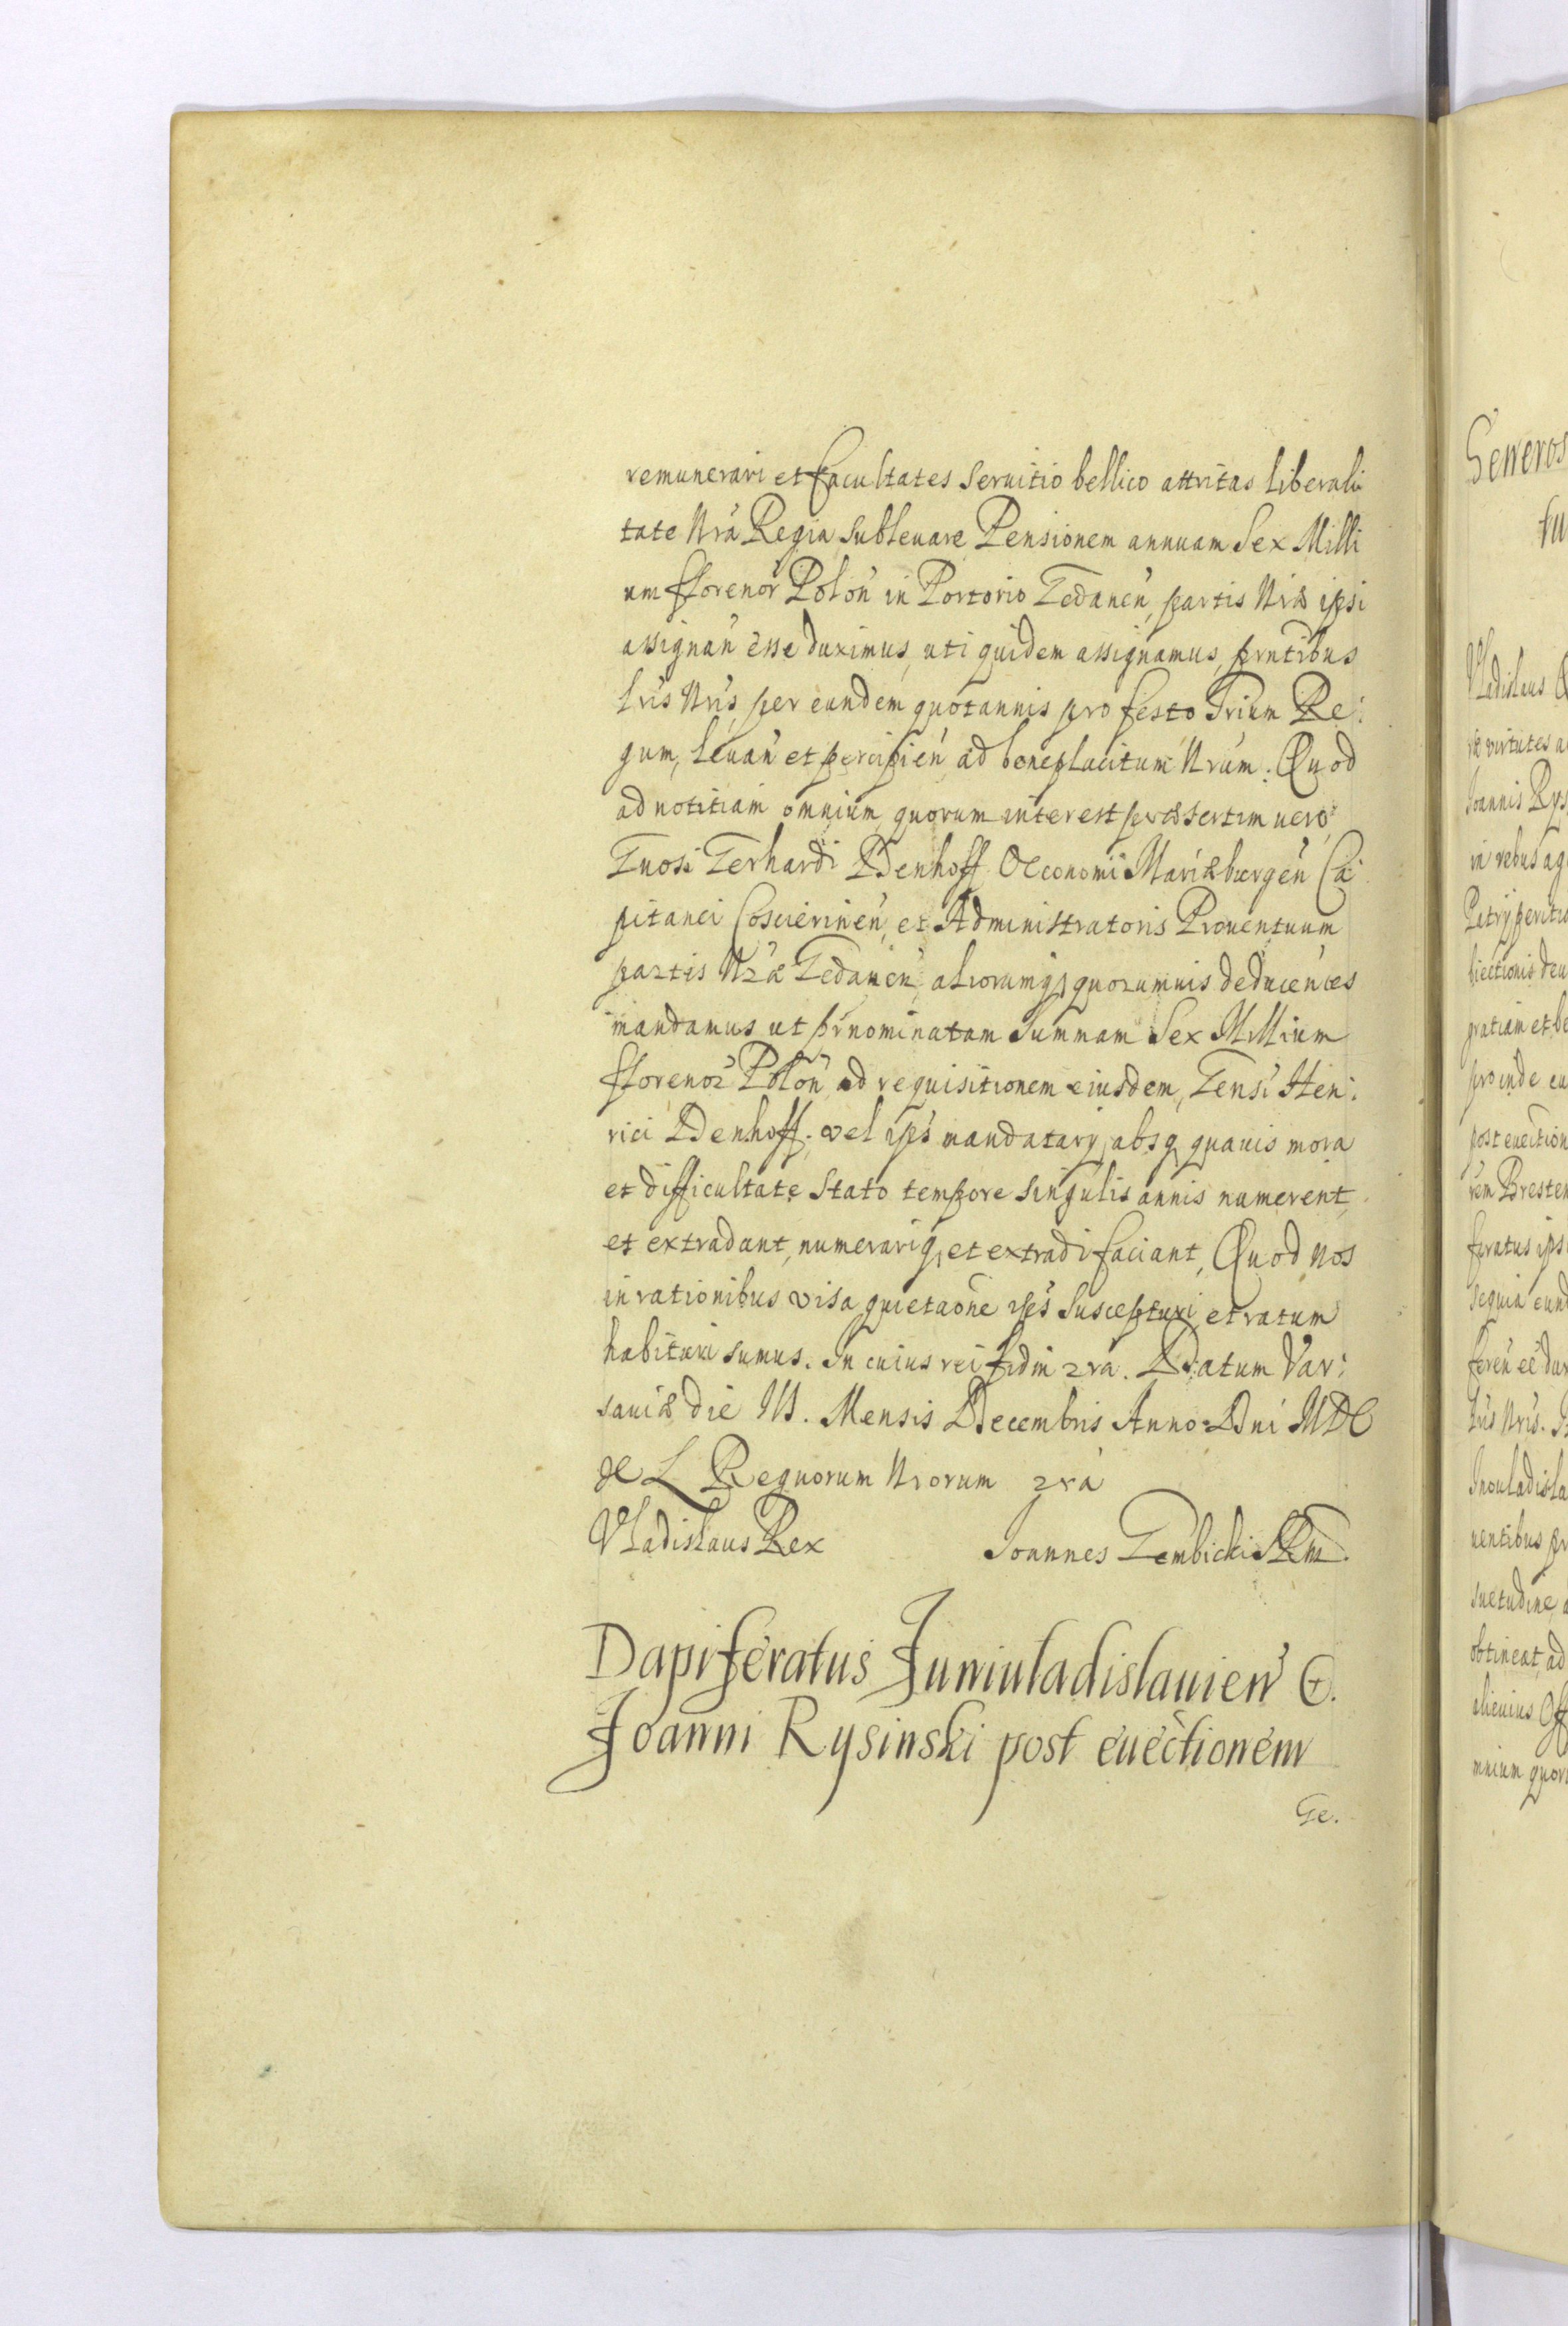 remunerari et facultates seruitio bellico attritas liberali
tate Nrã Regia subleuare Pensionem annuam Sex Milli
um fflorenor Polon in Portorio Gedanen, partis Nræ ipsi
assignan esse duximus, uti quidem assignamus, pnntibus
Lris Nris, per eundem quotannis pro festo Trium Re:
gum, leuan et percipien ad beneplacitum Nrum. Quod
ad notitiam omnium quorum interest præsertim uero
Gnosi Gerhardi Denhoff Oeconomi Mariæburgen Ca
pitanei Coscierinen, et Administratoris Prouentuum
partis Nræ Gedanen, aliorumq quorumuis deducentes
mandamus ut prnominatam Summam Sex Millium
fflorenor Polon ad requisitionem eiusdem, Gensi Hen:
rici Denhoff, vel ips mandatarij, absq quauis mora
et difficultate stato tempore singulis annis numerent
et extradant, numerariq et extradi faciant, Quod nos
in rationibus visa quietaõne ips suscepturi et ratum
habituri sumus. In cuius rei fidm 2ra. Datum Var:
sauiæ die Mensis Decembris Anno Dni MDC
XL Regnorum Nrorum 2ra
Vladislaus Rex Joannes Gembicki
Dapiferatus Juniuladislauien G.
Joanni Rysinski post euectionem
Ge.
Generos
Vladislaus
virtutes a
Joannis Rys
in rebus ag
gratiam et be
proinde eu
post euection
rem Bresten
feratus ips
sequia eund
Nris.
Inouladisla
uentibus pr
suetudine a
obtineat, ad
mnium quoru